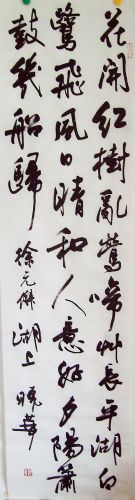 花開紅樹亂鶯啼艸長平湖白
鷺飛風日晴和人意好夕陽蕭
鼓幾船歸 徐元傑 湖上 曉華